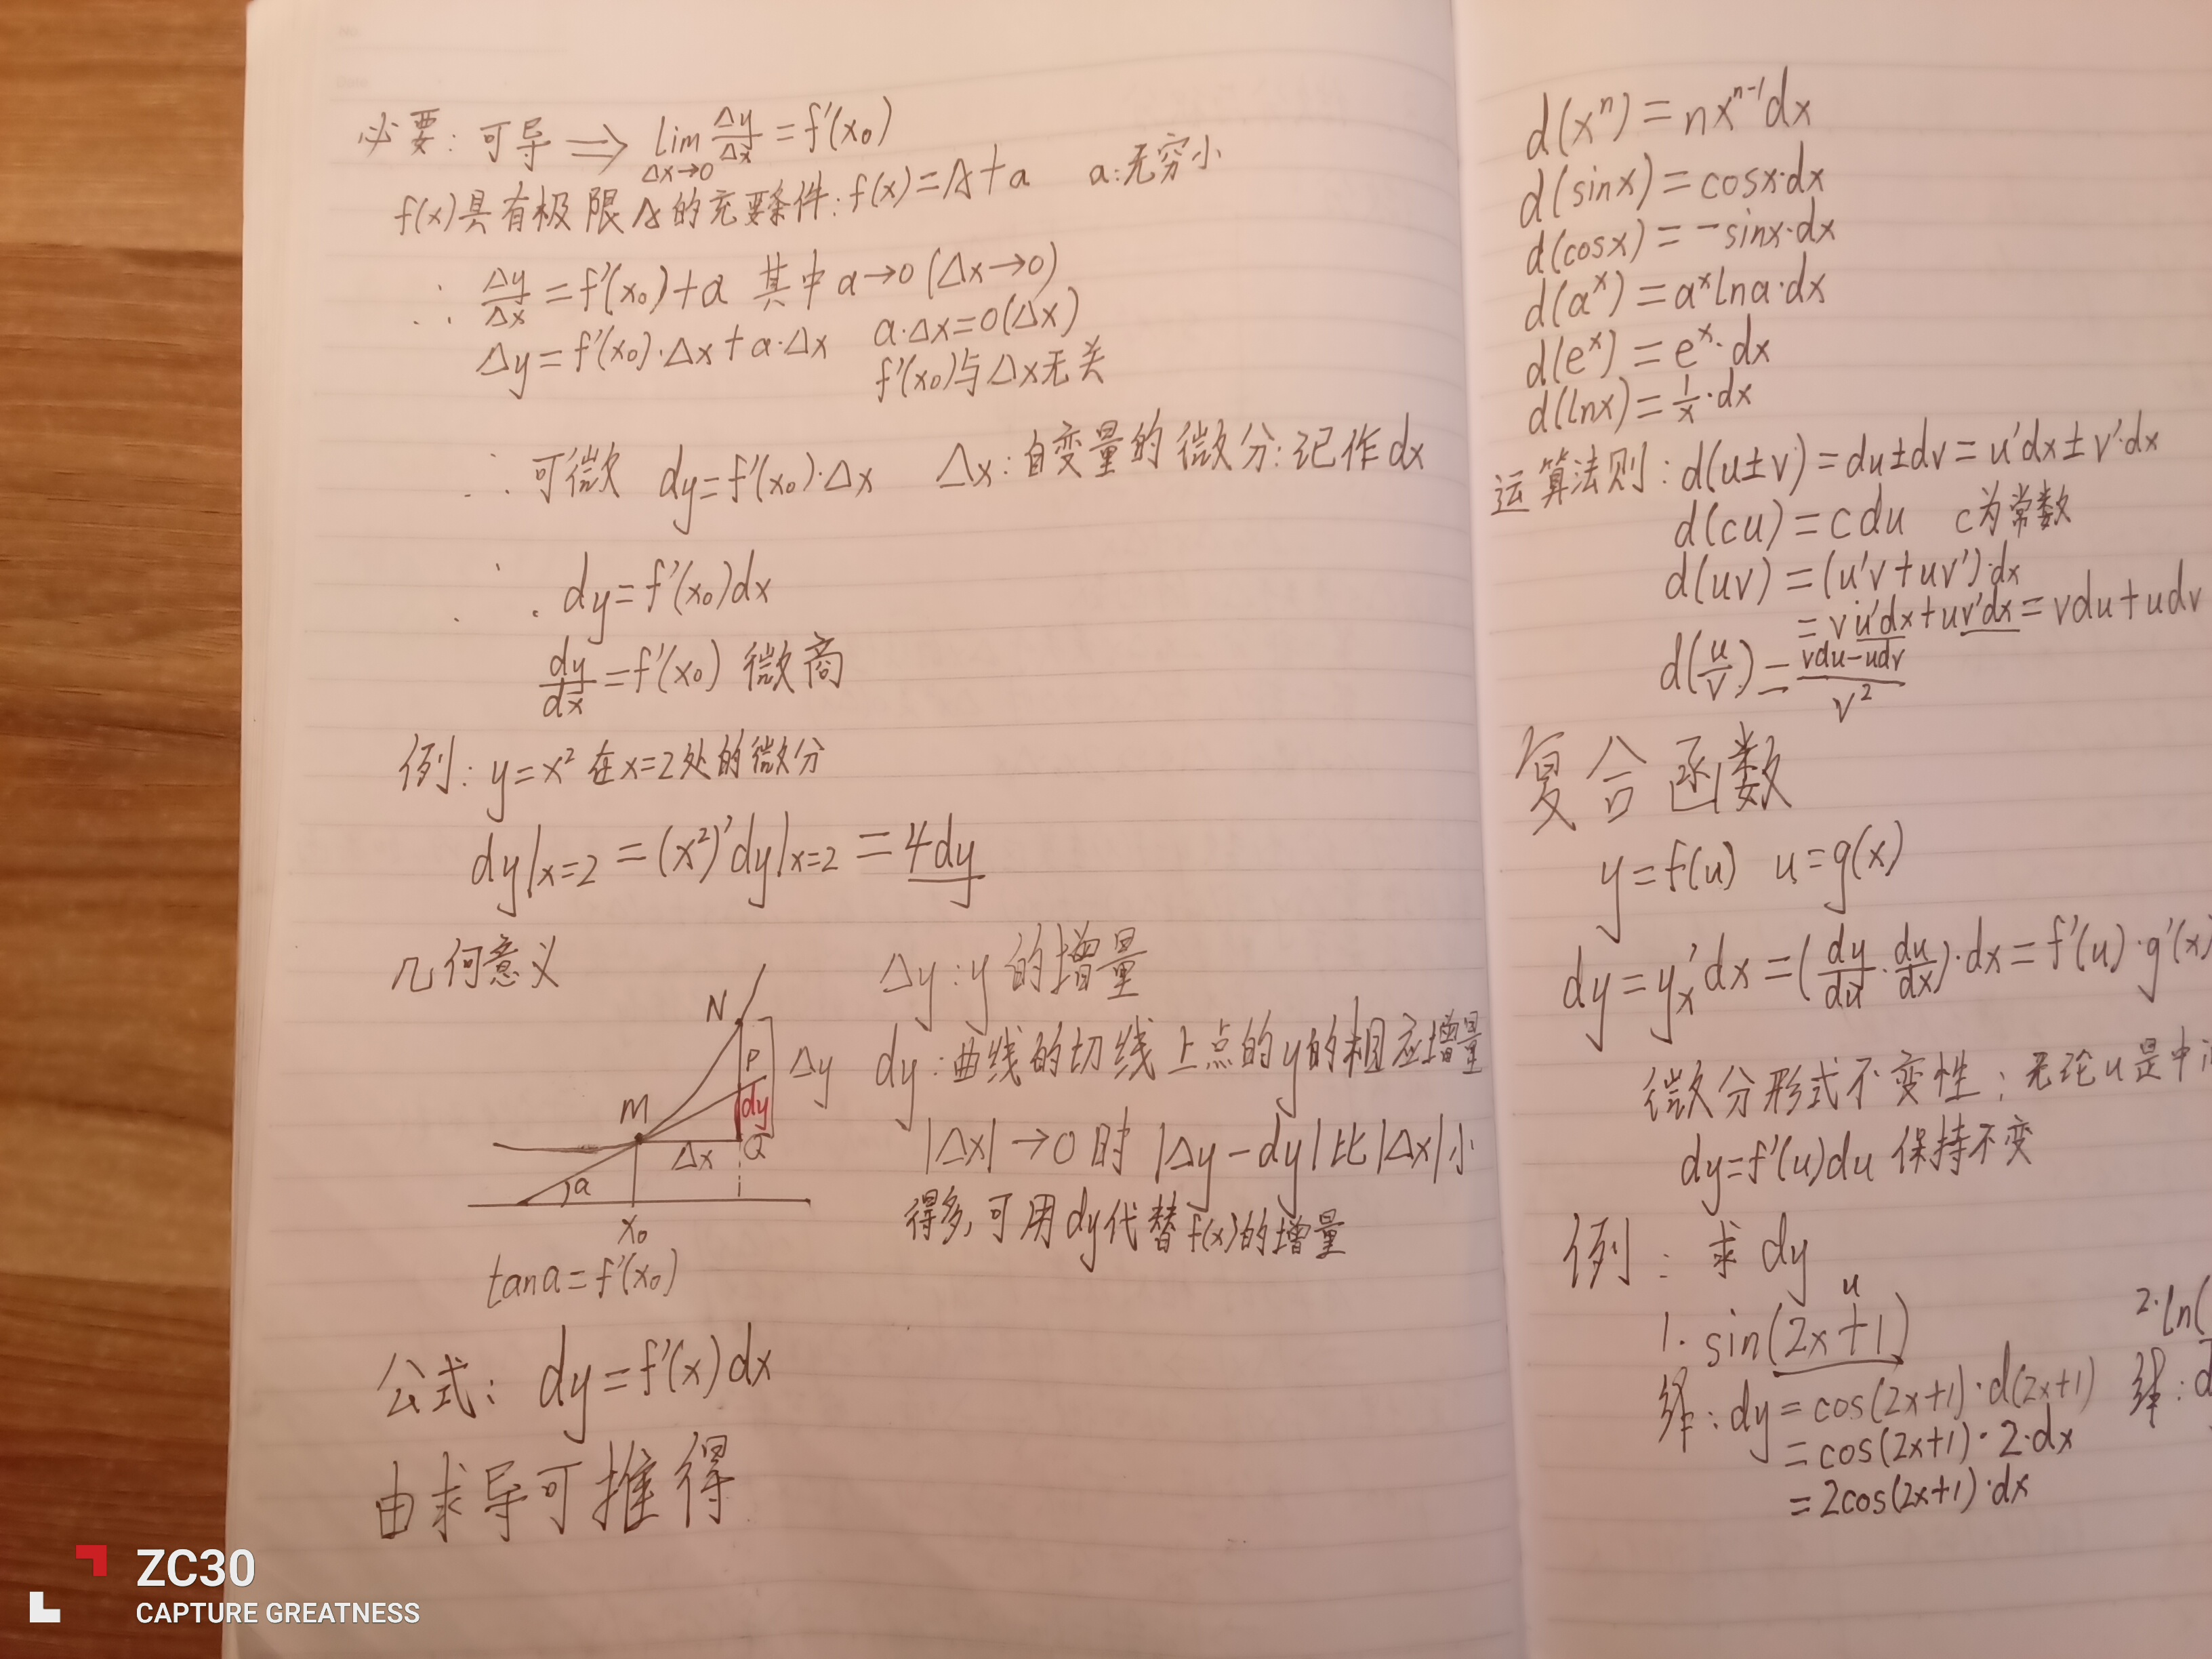 必要: 可导 ⟹ lim Δx→0 Δy/Δx = f'(x₀)
f(x)具有极限A的充要条件: f(x)=A+a a:无穷小
∴ Δy/Δx = f'(x₀)+a 其中a→0 (Δx→0)
Δy=f'(x₀)·Δx+a·Δx a·Δx=0(Δx)
f'(x₀)与Δx无关
∴可微 dy=f'(x₀)·Δx Δx:自变量的微分:记作dx
∴ dy=f'(x₀)dx
dy/dx=f'(x₀) 微商
例: y=x² 在x=2处的微分
dy|x=2 = (x²)'dy|x=2 = 4dy
几何意义
N
P
Δy
dy
M
Q
Δx
a
x₀
tana=f'(x₀)
Δy:y的增量
dy:曲线的切线上点的y的相应增量
|Δx|→0时 |Δy-dy|比|Δx|小
得多,可用dy代替f(x)的增量
公式: dy=f'(x)dx
由求导可推得
d(xⁿ)=nxⁿ⁻¹dx
d(sinx)=cosx·dx
d(cosx)=-sinx·dx
d(aˣ)=aˣlna·dx
d(eˣ)=eˣ·dx
d(lnx)=1/x·dx
运算法则: d(u±v)=du±dv=u'dx±v'·dx
d(cu)=cdu c为常数
d(uv)=(u'v+uv')·dx
=vu'dx+uv'dx=vdu+udv
d(u/v)=(vdu-udv)/v²
复合函数
y=f(u) u=g(x)
dy=y'ₓdx=(dy/du·du/dx)·dx=f'(u)·g'(x)
微分形式不变性: 无论u是中
dy=f'(u)du 保持不变
例: 求dy
u
1. sin(2x+1) 2.ln(
解: dy=cos(2x+1)·d(2x+1) 解: d
=cos(2x+1)·2·dx
=2cos(2x+1)·dx
ZC30
CAPTURE GREATNESS